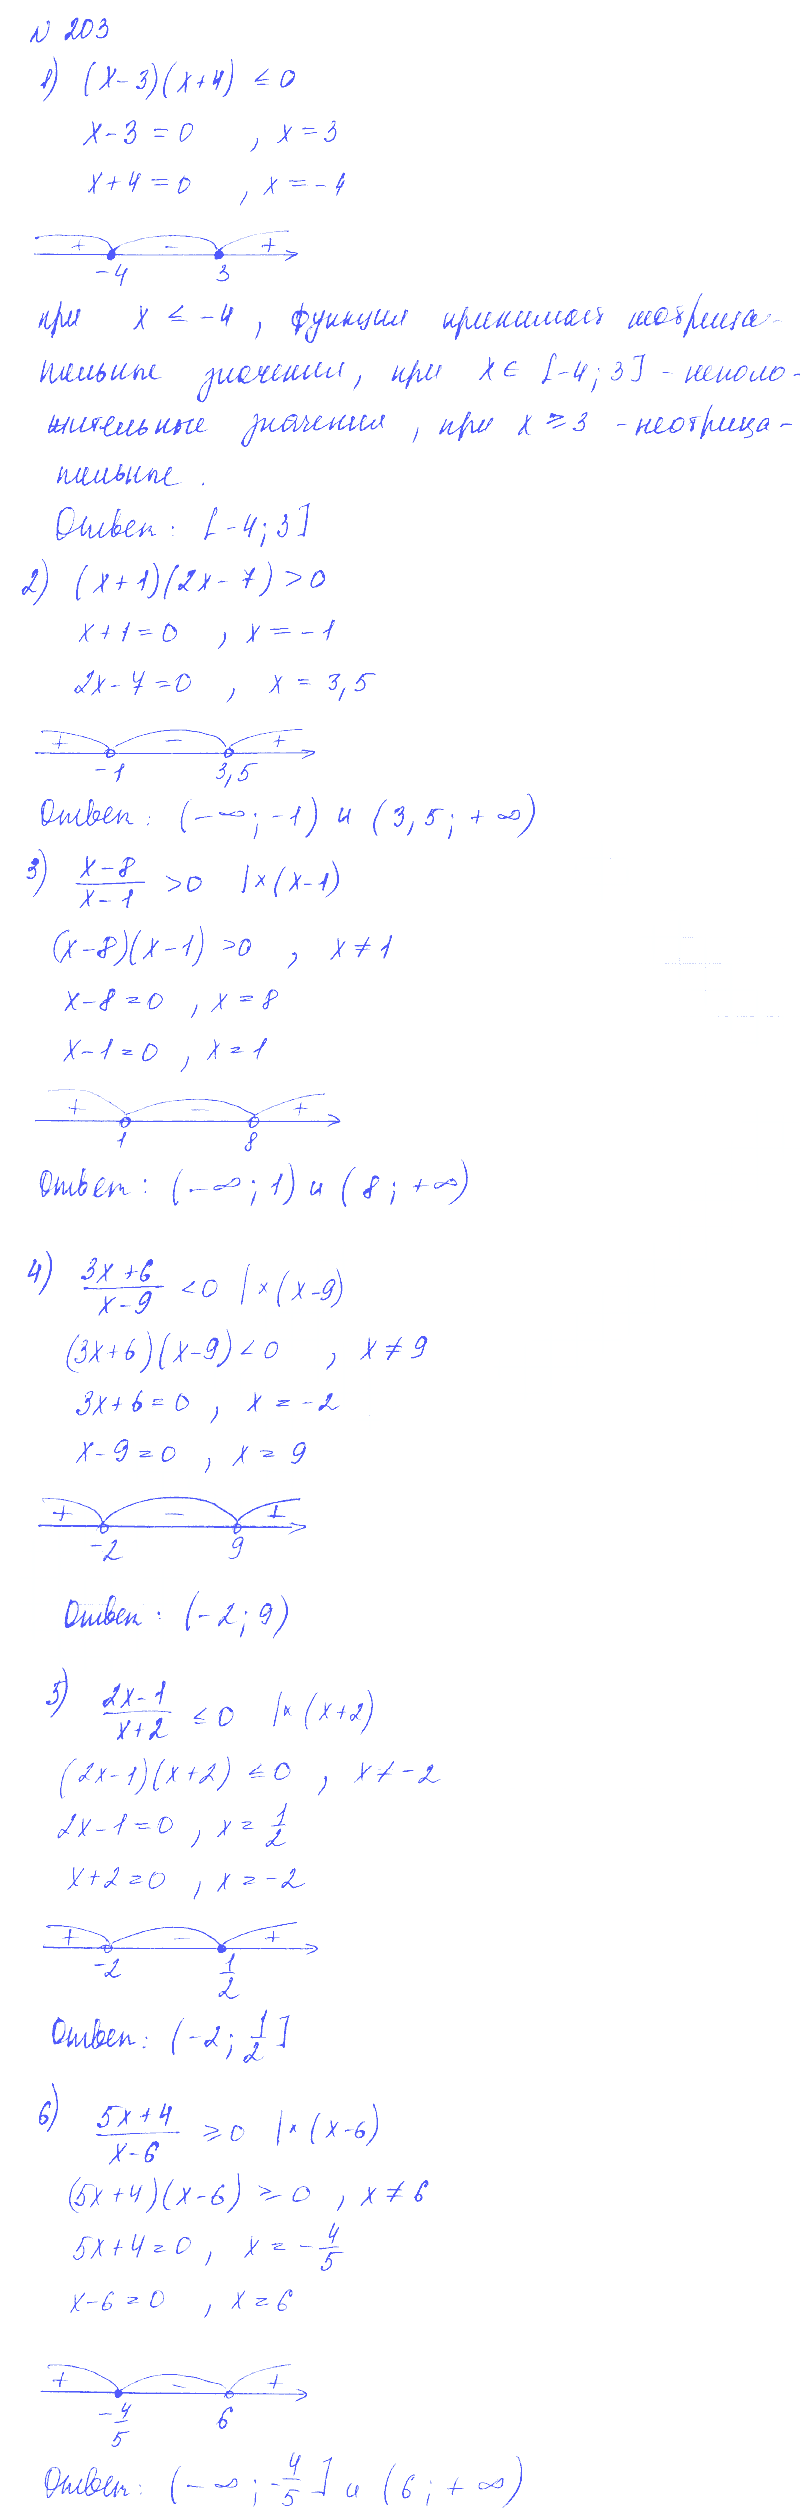 N 203
1) (x-3)(x+4) ≤ 0
x-3=0 , x=3
x+4=0 , x=-4
+ - +
-4 3
при x ≤ -4, функция принимает неотрица-
тельные значения, при x ∈ [-4; 3] - неполо-
жительные значения, при x ≥ 3 - неотрица-
тельные.
Ответ: [-4; 3]
2) (x+1)(2x-7) > 0
x+1=0 , x=-1
2x-7=0 , x=3,5
+ - +
-1 3,5
Ответ: (-∞; -1) и (3,5; +∞)
3) (x-8)/(x-1) > 0 |×(x-1)
(x-8)(x-1) > 0 , x≠1
x-8=0 , x=8
x-1=0 , x=1
+ - +
1 8
Ответ: (-∞; 1) и (8; +∞)
4) (3x+6)/(x-9) < 0 |×(x-9)
(3x+6)(x-9) < 0 , x≠9
3x+6=0 , x=-2
x-9=0 , x=9
+ - +
-2 9
Ответ: (-2; 9)
5) (2x-1)/(x+2) ≤ 0 |×(x+2)
(2x-1)(x+2) ≤ 0 , x≠-2
2x-1=0 , x=1/2
x+2=0 , x=-2
+ - +
-2 1/2
Ответ: (-2; 1/2]
6) (5x+4)/(x-6) ≥ 0 |×(x-6)
(5x+4)(x-6) ≥ 0 , x≠6
5x+4=0 , x=-4/5
x-6=0 , x=6
+ - +
-4/5 6
Ответ: (-∞; -4/5] и (6; +∞)